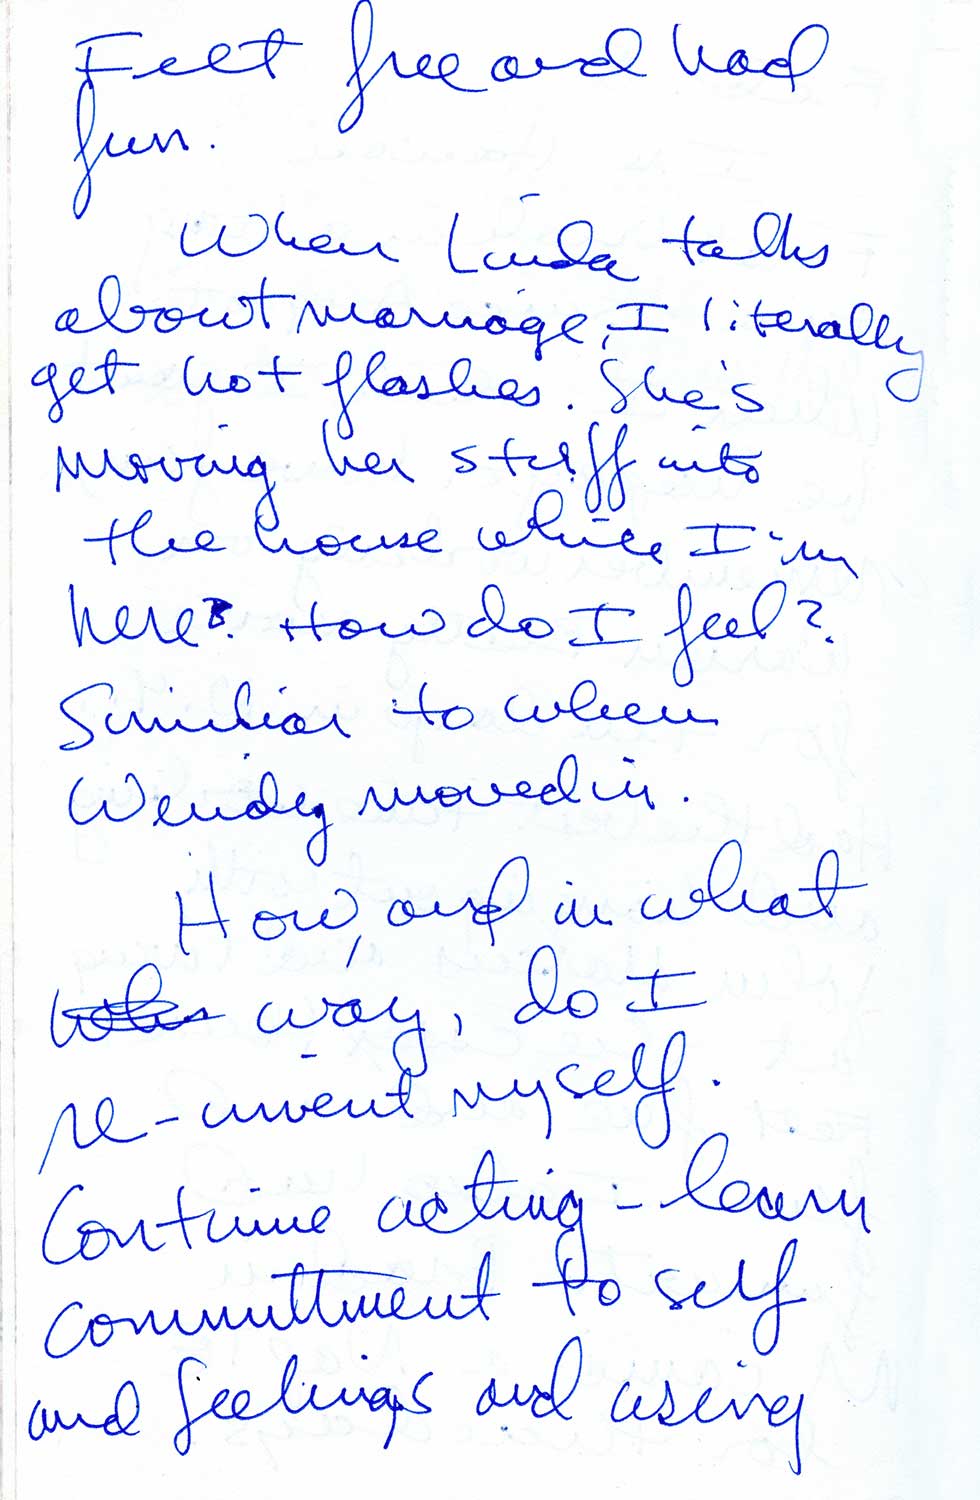 Felt free and had
fun.
When Linda talks
about marriage, I literally
get hot flashes. She's
moving her stuff into
the house while I'm
here? How do I feel?
Similiar to when
Wendy moved in.
How, and in what
way, do I
re-invent myself.
Continue acting - learn
committment to self
and feelings and using